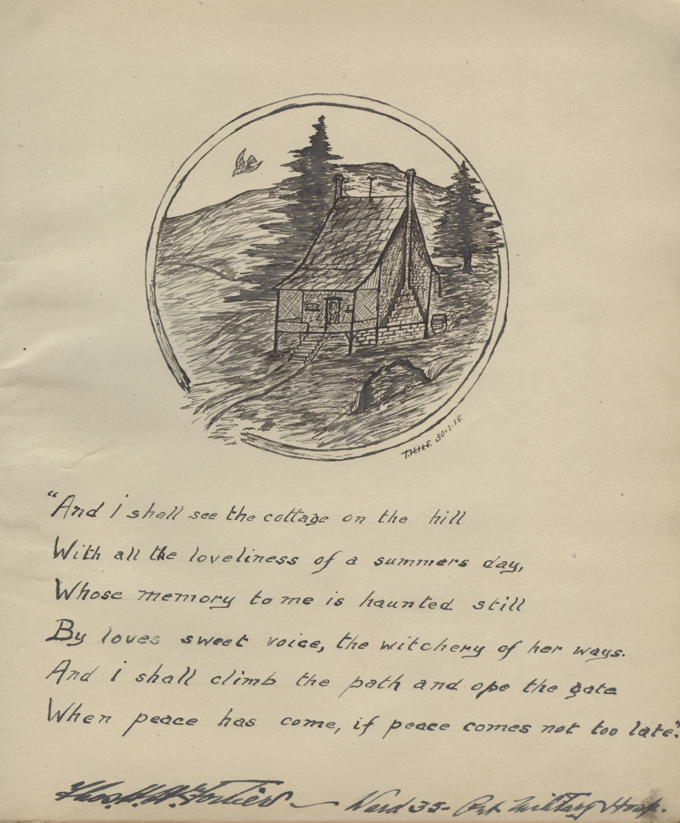 T.H.H.F. 30·1·18.
"And i shall see the cottage on the hill
With all the loveliness of a summers day,
Whose memory to me is haunted still
By loves sweet voice, the witchery of her ways.
And i shall climb the path and ope the gate
When peace has come, if peace comes not too late".
Thos. H. H. Fortier — Ward 35 - Ont. Military Hosp.